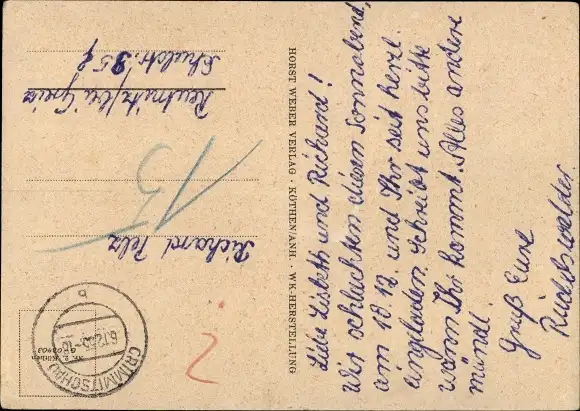 Liebe Lisbeth und Richard!
Wir schlachten diesen Sonnabend,
am 10.12. und Ihr seit herzl.
eingeladen. Schreibt uns bitte
wann Ihr kommt. Alles andere
mündl.
Gruß Eure
Rückswalder.
HORST WEBER VERLAG · KÖTHEN/ANH. · WK-HERSTELLUNG
Richard Pelz
Reudnitz/bei Greiz
Schulstr. 85
13
2
CRIMMITSCHAU
b